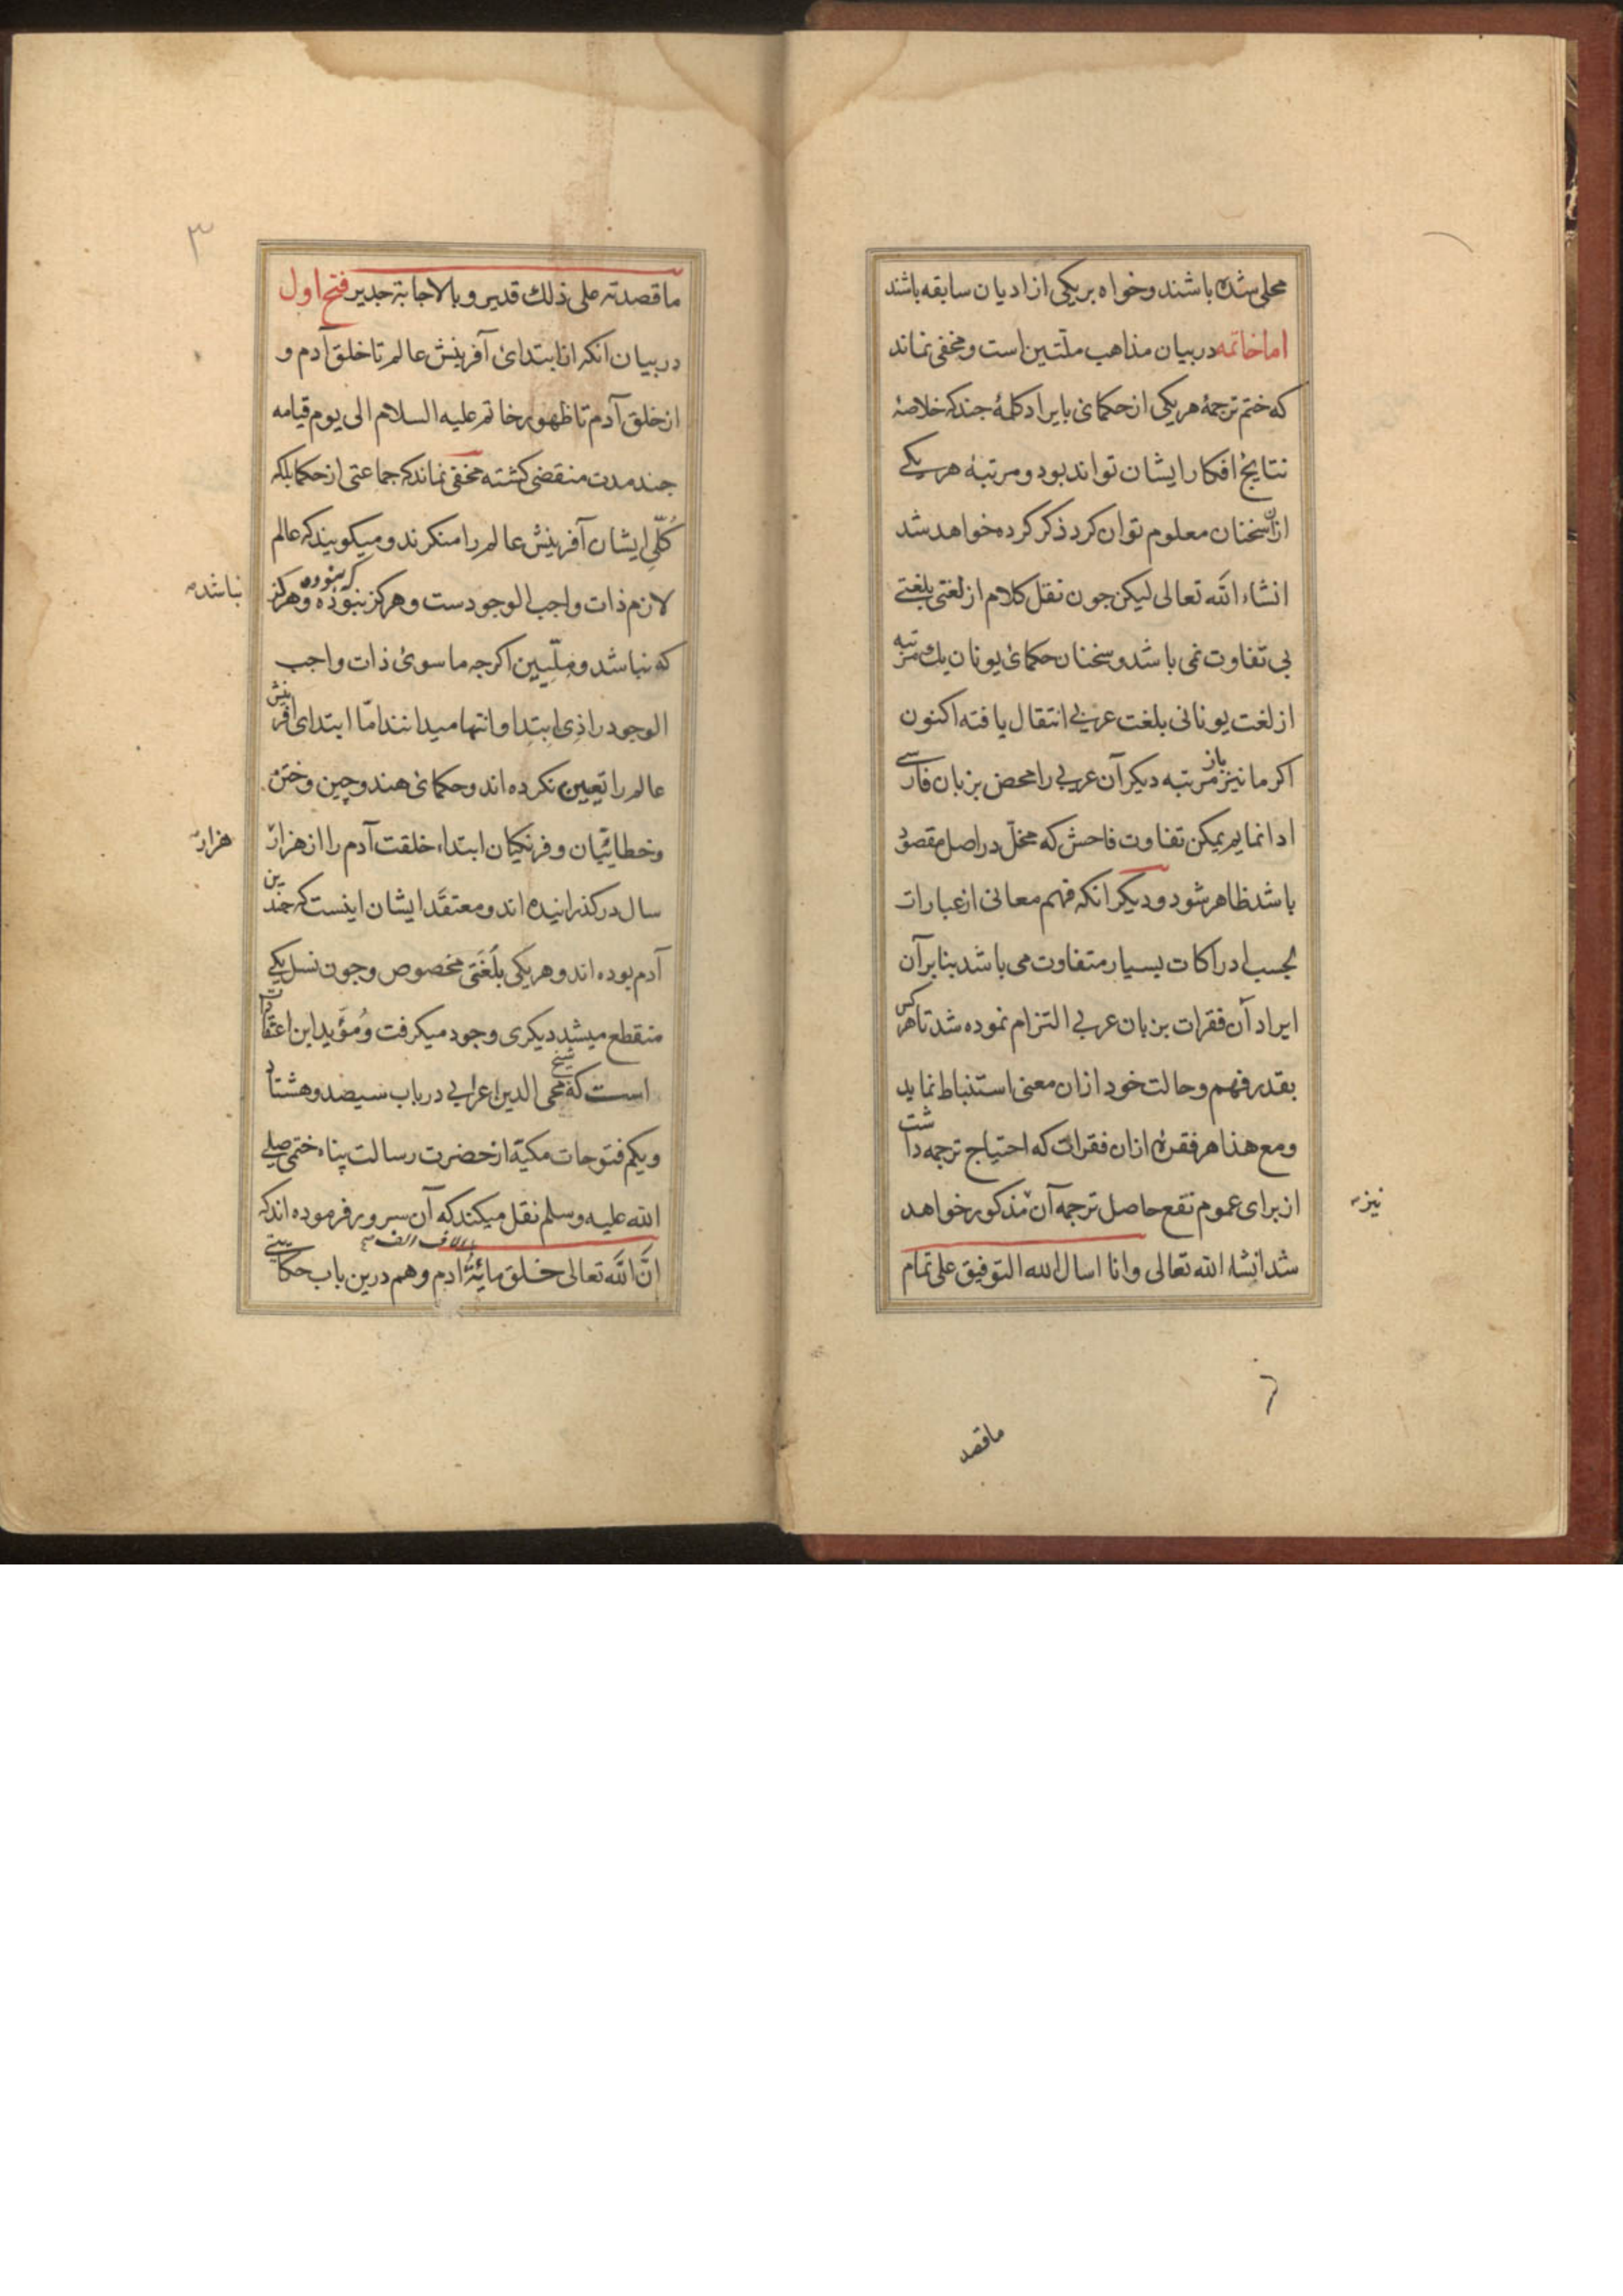 محلی شده باشند و خواه بر یکی از ادیان سابقه باشند
اما خاتمه در بیان مذاهب ملتین است و مخفی نماند
که ختم ترجمهٔ هر یکی از حکمای بایراد کلمهٔ جند که خلاصهٔ
نتایج افکار ایشان تواند بود و مرتبهٔ هر یکی
ازان سخنان معلوم توان کرد ذکر کرده خواهد شد
انشاء الله تعالی لیکن جون نقل کلام از لغتی بلغتی
بی تفاوت نمی باشد و سخنان حکمای یونان یك مرتبه
از لغت یونانی بلغت عربی انتقال یافته اکنون
اکر ما نیز باز مرتبه دیکر آن عربی را محض بزبان فارسی
ادا نمایم یمکن تفاوت فاحش که مخلّ در اصل مقصود
باشد ظاهر شود و دیکر انکه فهم معانی از عبارات
بحسب ادراکات بسیار متفاوت می باشد بنابر آن
ایراد آن فقرات بزبان عربی التزام نموده شد تا هر کس
بقدر فهم و حالت خود ازان معنی استنباط نماید
ومع هذا هر فقرهٔ ازان فقرات که احتیاج ترجمه داشت
از برای عموم نفع حاصل ترجمه آن مذکور خواهد
نیز
شد انشاء الله تعالی وانا اسال الله التوفیق علی تمام
٢
ماقصد
٣
ماقصدته علی ذلك قدیر و بالاجابة جدیر فتح اول
در بیان انکه از ابتدای آفرینش عالم تا خلق آدم و
از خلق آدم تا ظهور خاتم علیه السلام الی یوم قیامه
جند مدت منقضی کشته مخفی نماند که جماعتی از حکما بلکه
کُلّی ایشان آفرینش عالم را منکرند و میکویند که عالم
لازم ذات واجب الوجودست و هرکز نبوده که نبوده و هرکز
نباشد
که نباشد و ملّیین اکرجه ما سوی ذات واجب
الوجود را ذی ابتدا و انتها میدانند امّا ابتدای افرینش
عالم را تعیین نکرده اند و حکمای هند و چین و ختن
و خطائیان و فرنکیان ابتداء خلقت آدم را از هزار
هزار
سال در کذرانیده اند و معتقد ایشان اینست که جندین
آدم بوده اند و هر یکی بلُغَتی مخصوص و جون نسل یکی
منقطع میشد دیکری وجود میکرفت و مُؤَید این اعتقادات
است که شیخ محی الدین اعرابی در باب سیصد و هشتاد
و یکم فتوحات مکیة از حضرت رسالت پناه ختمی صلی
الله علیه وسلم نقل میکند که آن سرور فرموده اند که
انَّ اللّه تعالی خلق مائة الاف الف ادم و هم درین باب حکایتی